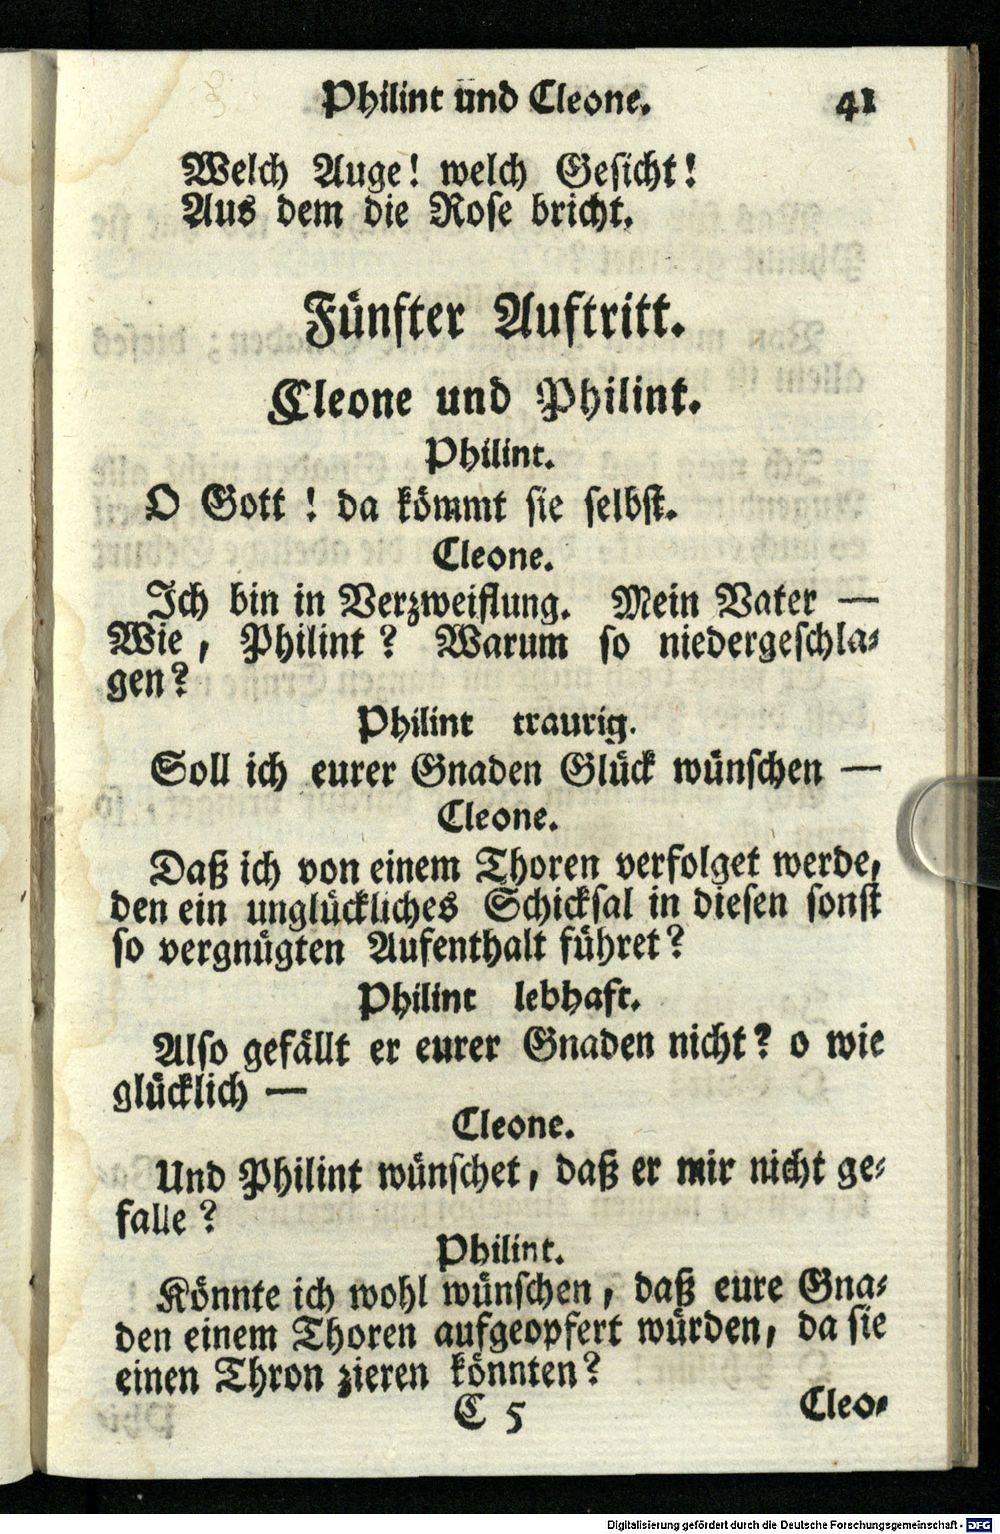 Philint und Cleone. 41
Welch Auge! welch Gesicht!
Aus dem die Rose bricht.
Fünfter Auftritt.
Cleone und Philint.
Philint.
O Gott! da kömmt sie selbst.
Cleone.
Ich bin in Verzweiflung. Mein Vater —
Wie, Philint? Warum so niedergeschla-
gen?
Philint traurig.
Soll ich eurer Gnaden Glück wünschen —
Cleone.
Daß ich von einem Thoren verfolget werde,
den ein unglückliches Schicksal in diesen sonst
so vergnügten Aufenthalt führet?
Philint lebhaft.
Also gefällt er eurer Gnaden nicht? o wie
glücklich —
Cleone.
Und Philint wünschet, daß er mir nicht ge-
falle?
Philint.
Könnte ich wohl wünschen, daß eure Gna-
den einem Thoren aufgeopfert würden, da sie
einen Thron zieren könnten?
C 5 Cleo-
Digitalisierung gefördert durch die Deutsche Forschungsgemeinschaft - DFG